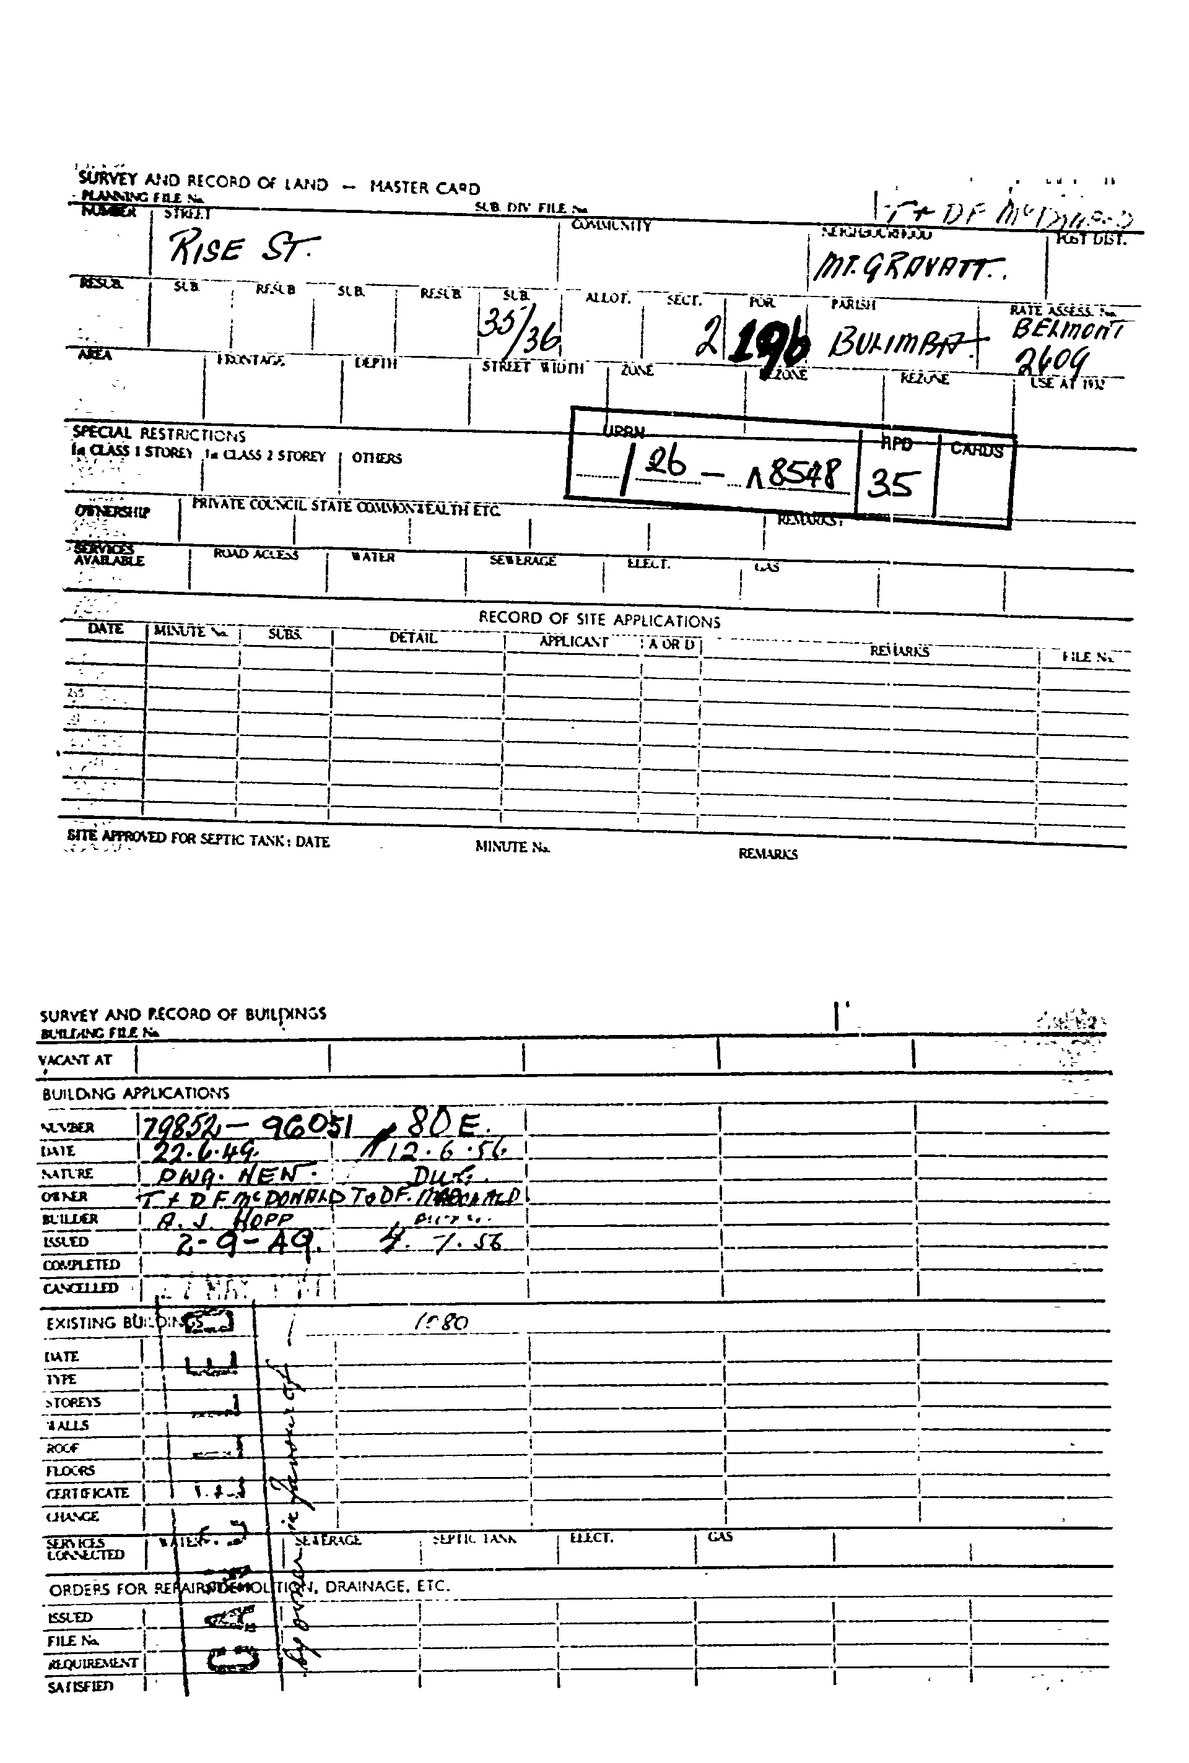 SURVEY AND RECORD OF LAND — MASTER CARD
PLANNING FILE No. SUB. DIV. FILE No. T + D F McDonald
NUMBER STREET COMMUNITY NEIGHBOURHOOD POST DIST.
RISE ST. MT. GRAVATT.
RESUB. SUB. RESUB SUB. RESUB. SUB. ALLOT. SECT. POR. PARISH RATE ASSESS. No.
35/36 2 196 BULIMBA BELMONT
2609
AREA FRONTAGE DEPTH STREET WIDTH ZONE REZONE REZONE USE AT 1932
SPECIAL RESTRICTIONS UPRN RPD CARDS
1a CLASS 1 STOREY 1a CLASS 2 STOREY OTHERS 26 — 18548 35
OWNERSHIP PRIVATE COUNCIL STATE COMMONWEALTH ETC. REMARKS:
SERVICES AVAILABLE ROAD ACCESS WATER SEWERAGE ELECT. GAS
RECORD OF SITE APPLICATIONS
DATE MINUTE No. SUBS. DETAIL APPLICANT A OR D REMARKS FILE No.
SITE APPROVED FOR SEPTIC TANK: DATE MINUTE No. REMARKS
SURVEY AND RECORD OF BUILDINGS
BUILDING FILE No.
VACANT AT
BUILDING APPLICATIONS
NUMBER 79852 — 96051 80 E.
DATE 22.6.49. 12.6.56.
NATURE DWG. NEW. DWG.
OWNER T + D F McDONALD T & DF. MACDONALD
BUILDER A. J. HOPP
ISSUED 2-9-49. 4.7.56
COMPLETED
CANCELLED MAY
EXISTING BUILDINGS
DATE
TYPE
STOREYS
WALLS
ROOF
FLOORS
CERTIFICATE
CHANGE
SERVICES CONNECTED WATER SEWERAGE SEPTIC TANK ELECT. GAS
ORDERS FOR REPAIR, DEMOLITION, DRAINAGE, ETC.
ISSUED
FILE No.
REQUIREMENT
SATISFIED
CANCELLED
by owner in favour of —